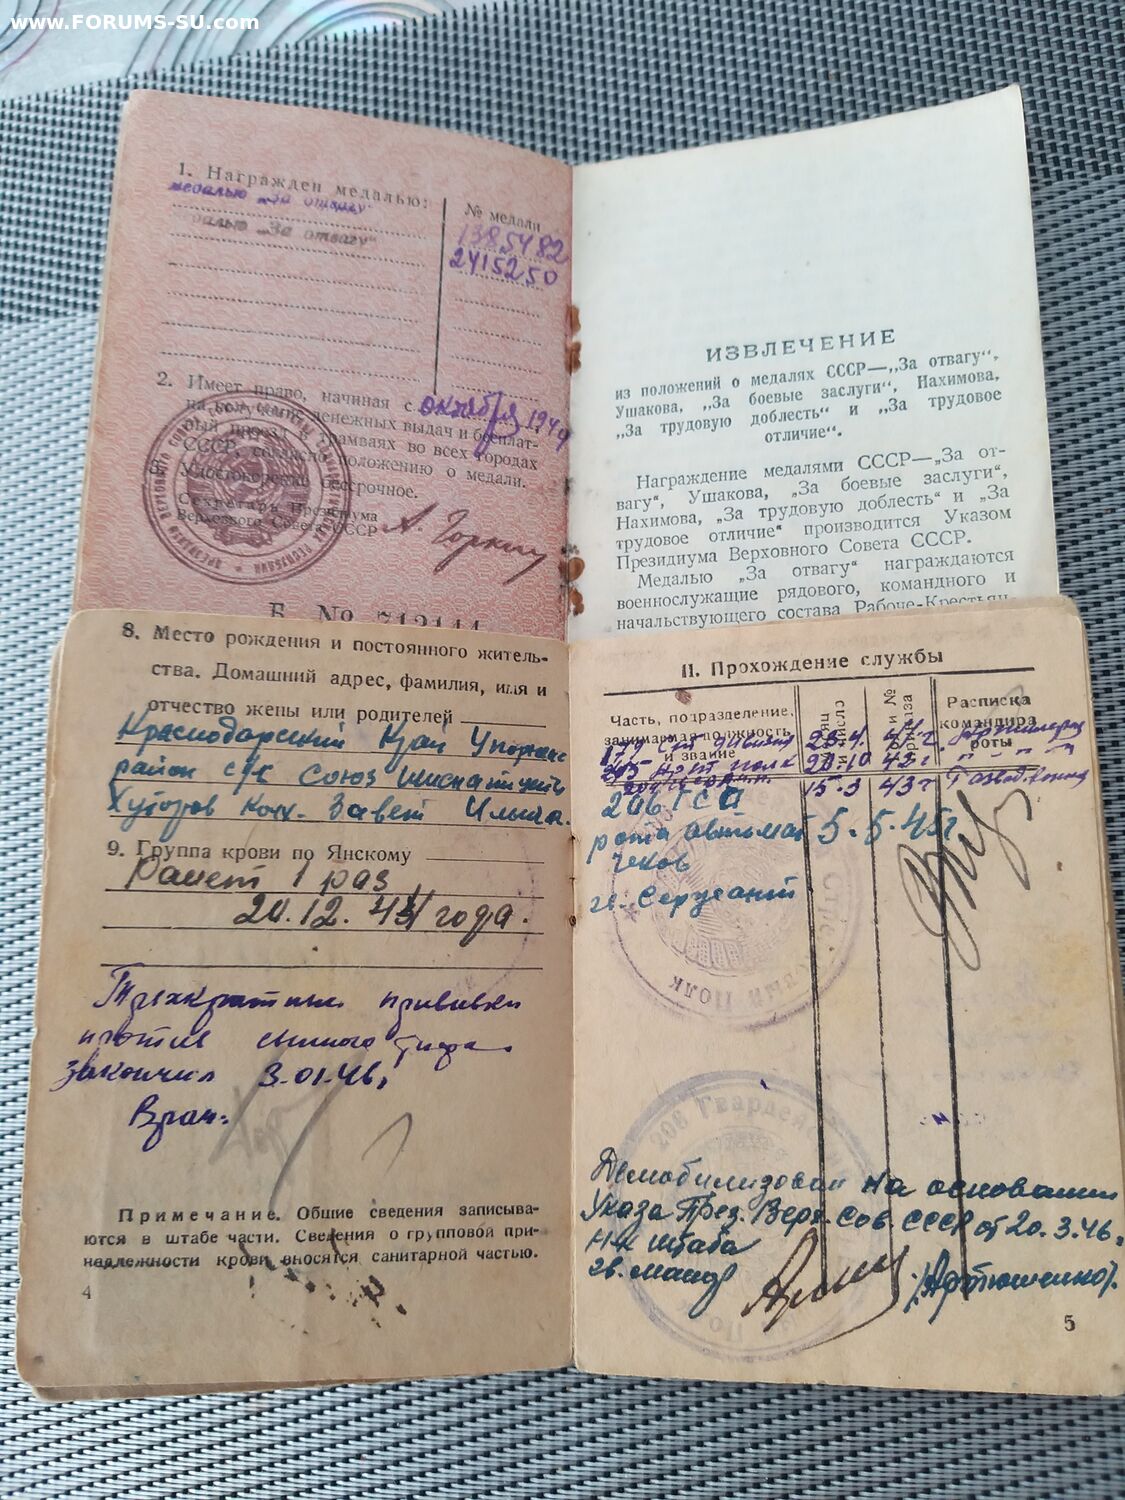 www.FORUMS-SU.com
1. Награжден медалью:
медалью „За отвагу“
медалью „За отвагу“
№ медали
1385482
2415250
2. Имеет право, начиная с октября 1944
на получение денежных выдач и бесплат-
ный проезд в трамваях во всех городах
СССР, согласно положению о медали.
3. Удостоверение бессрочное.
Секретарь Президиума
Верховного Совета СССР
А. Горкин
Б № 712144
ИЗВЛЕЧЕНИЕ
из положений о медалях СССР—„За отвагу“,
Ушакова, „За боевые заслуги“, Нахимова,
„За трудовую доблесть“ и „За трудовое
отличие“.
Награждение медалями СССР—„За от-
вагу“, Ушакова, „За боевые заслуги“,
Нахимова, „За трудовую доблесть“ и „За
трудовое отличие“ производится Указом
Президиума Верховного Совета СССР.
Медалью „За отвагу“ награждаются
военнослужащие рядового, командного и
начальствующего состава Рабоче-Крестьян-
8. Место рождения и постоянного житель-
ства. Домашний адрес, фамилия, имя и
отчество жены или родителей
Краснодарский Край
район с/с Союз
Хуторов Колх. Завет Ильича.
9. Группа крови по Янскому
Ранен 1 раз
20.12. года.
Трехкратные прививки
против сыпного тифа
закончил 3-01-46,
Врач:
Примечание. Общие сведения записыва-
ются в штабе части. Сведения о групповой при-
надлежности крови вносятся санитарной частью.
4
II. Прохождение службы
Часть, подразделение,
занимаемая должность
и звание
Расписка
командира
роты
179 дивизия 23.4. 41 г.
полк 20.10 42 г.
15.3 43 г.
206 ГСП
рота автомат 5.5.45 г
чиков
гв. Сержант
206 Гвардейский
Демобилизован на основании
Указа През. Верх. Сов. СССР от 20.3.46.
Н-к штаба
гв. майор /Артюшенко/.
5